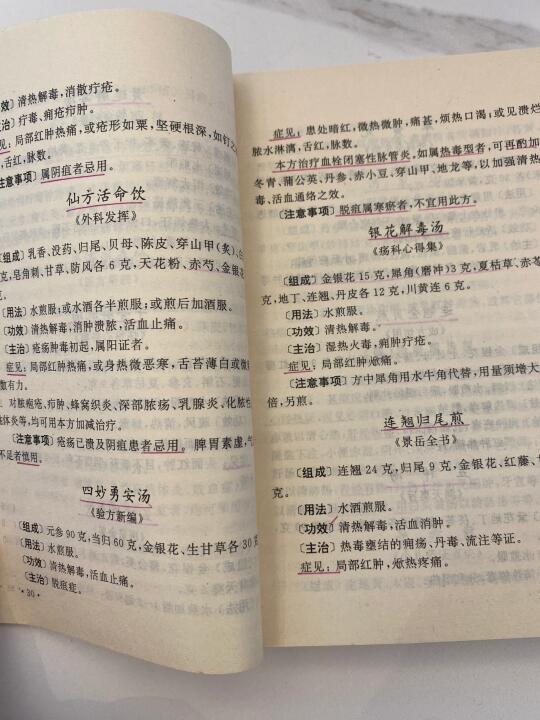 效〕清热解毒,消散疔疮。
治〕疔毒、痈疮疖肿。
见:局部红肿热痛,或疮形如粟,坚硬根深,如钉之
,舌红,脉数。
〔注意事项〕属阴疽者忌用。
仙方活命饮
《外科发挥》
〔组成〕乳香、没药、归尾、贝母、陈皮、穿山甲(炙)、白
克,皂角刺、甘草、防风各6克,天花粉、赤芍、金银花
〔用法〕水煎服;或水酒各半煎服;或煎后加酒服。
〔功效〕清热解毒,消肿溃脓,活血止痛。
〔主治〕疮疡肿毒初起,属阳证者。
症见:局部红肿热痛,或身热微恶寒,舌苔薄白或微
数有力。
对脓疱疮、疖肿、蜂窝织炎、深部脓疡、乳腺炎、化脓性
体炎等,均可用本方加减治疗。
〔注意事项〕疮疡已溃及阴疽患者忌用。脾胃素虚,气
不足者慎用。
四妙勇安汤
《验方新编》
〔组成〕元参90克,当归60克,金银花、生甘草各30克
〔用法〕水煎服。
〔功效〕清热解毒,活血止痛。
〔主治〕脱疽症。
·30·
症见:患处暗红,微热微肿,痛甚,烦热口渴;或见溃烂
脓水淋漓,舌红,脉数。
本方治疗血栓闭塞性脉管炎,如属热毒型者,可再酌加
冬青、蒲公英、丹参、赤小豆、穿山甲、地龙等,以加强清热
毒、活血通络之效。
〔注意事项〕脱疽属寒瘀者,不宜用此方。
银花解毒汤
《疡科心得集》
〔组成〕金银花15克,犀角(磨冲)3克,夏枯草、赤苓
克,地丁、连翘、丹皮各12克,川黄连6克。
〔用法〕水煎服。
〔功效〕清热解毒。
〔主治〕湿热火毒,痈肿疔疮。
症见:局部红肿焮痛。
〔注意事项〕方中犀角用水牛角代替,用量须增大
倍,另煎。
连翘归尾煎
《景岳全书》
〔组成〕连翘24克,归尾9克,金银花、红藤、
克。
〔用法〕水酒煎服。
〔功效〕清热解毒,活血消肿。
〔主治〕热毒壅结的痈疡、丹毒、流注等证。
症见:局部红肿,焮热疼痛。